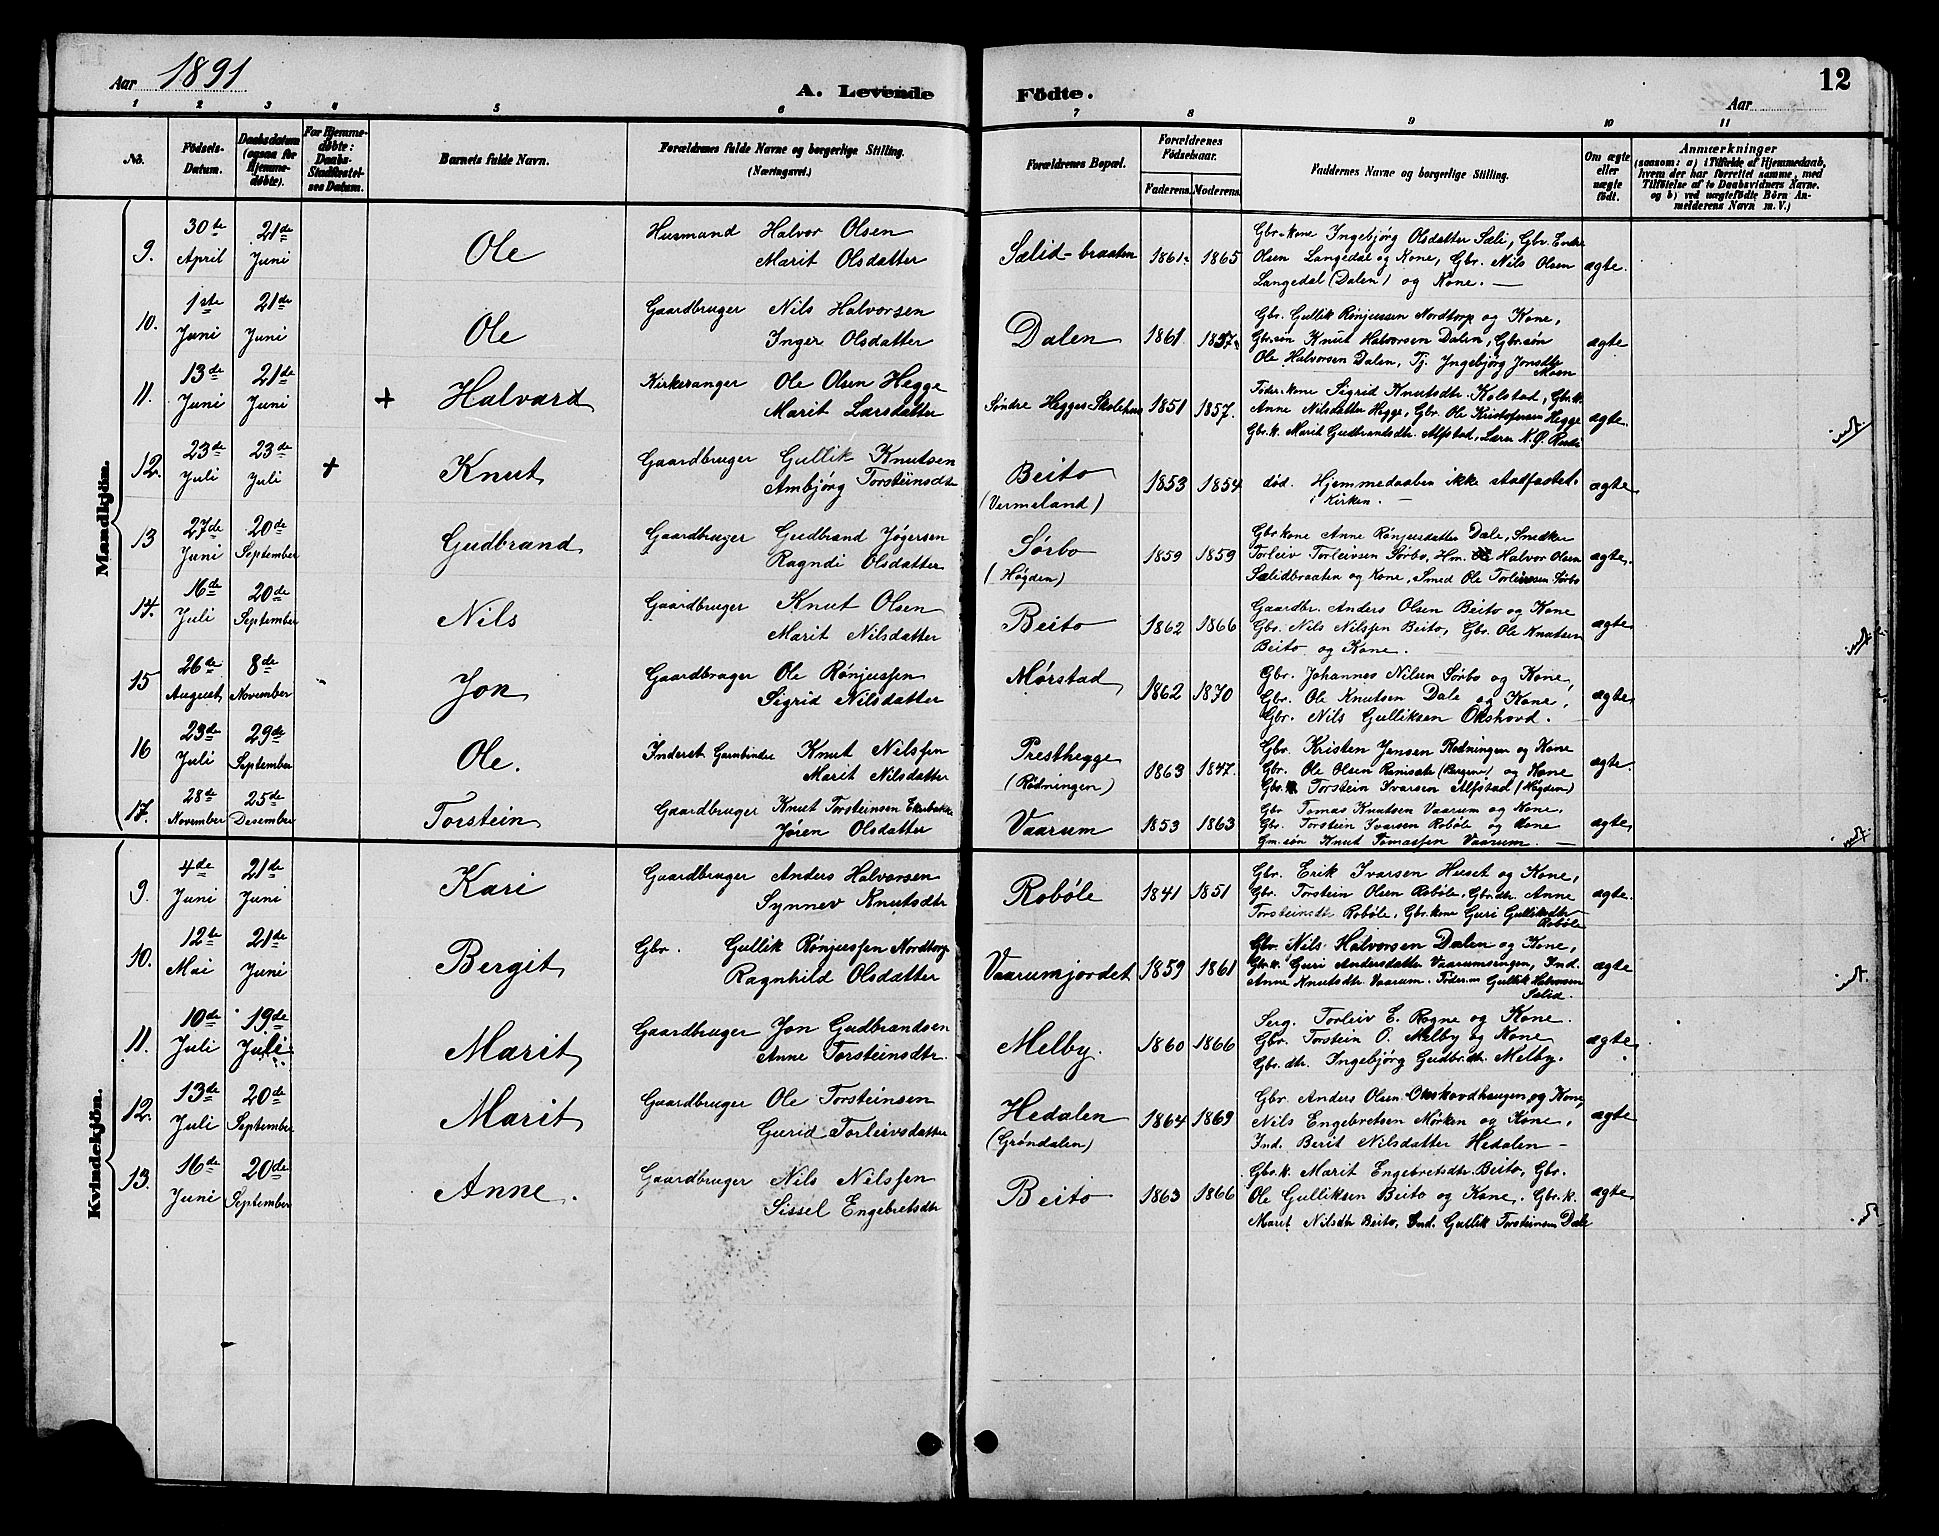 Aar 1891
A. Levende Födte.
Aar
12
1 2 3 4 5 6 7 8 9 10 11
No.
Födsels-Datum.
Daabsdatum (ogsaa for Hjemmedøbte).
For Hjemmedøbte: Daabs-Stadfæstelses Datum.
Barnets fulde Navn.
Forældrenes fulde Navne og borgerlige Stilling. (Næringsvei.)
Forældrenes Bopæl.
Forældrenes Födselsaar.
Faderens. Moderens.
Faddernes Navne og borgerlige Stilling.
Om ægte eller uægte födt.
Anmærkninger
(saasom: a) i Tilfælde af Hjemmedaab, hvem der har forrettet samme, med Tilföielse af to Daabsvidners Navne. og b) ved uægtefödte Börn Anmelderens Navn m. V.)
Mandkjön.
9. 30te April 21de Juni Ole Husmand Halvor Olsen Marit Olsdatter Sælid-braaten 1861 1865 Gbr.kone Ingebjørg Olsdatter Sæli, Gbr. Endre
Olsen Langedal og Kone, Gbr. Nils Olsen
Langedal (Dalen) og Kone. — ægte.
10. 1ste Juni 21de Juni Ole Gaardbruger Nils Halvorsen Inger Olsdatter Dalen 1861 1857 Gbr. Gullik Rønjussen Nordtorp og Kone,
Gbr.søn Knut Halvorsen Dalen, Gbr.søn
Ole Halvorsen Dalen, Tj. Ingebjørg Jonsdtr Moen ægte
11. 13de Juni 21de Juni + Halvard Kirkesanger Ole Olsen Hegge Marit Larsdatter Søndre Hegges Skolehus 1851 1857. Föder.kone Sigrid Knutsdtr. Kolstad, Gbr.k.
Anne Nilsdatter Hegge, Gbr. Ole Kristofersen Hegge
Gbr.k. Marit Gudbrandsdtr. Alfstad, Lærer N. Ø. ægte.
12. 23de Juli 23de Juli + Knut Gaardbruger Gullik Knutsen Ambjörg Torsteinsdtr Beito (Vermeland) 1853 1854 död. Hjemmedaaben ikke stadfæstet
i Kirken. — ægte
13 27de Juni 20de September Gudbrand Gaardbruger Gudbrand Jøgersen Ragndi Olsdatter Sørbo (Høgden) 1859 1859 Gbr.kone Anne Rønjusdatter Dale, Snedker
Torleiv Torleivsen Sørbo, Hm. Halvor Olsen
Sælidbraaten og Kone, Smed Ole Torleivsen Sørbo ægte.
14. 16de Juli 20de September Nils Gaardbruger Knut Olsen Marit Nilsdatter Beito 1862 1866 Gaardbr. Anders Olsen Beito og Kone
Gbr. Nils Nilssen Beito, Gbr. Ole Knutsen
Beito og Kone. ægte
15 26de August 8de November Jon Gaardbruger Ole Rønjussen Sigrid Nilsdatter Mørstad 1862 1870 Gbr. Johannes Nilsen Sørbo og Kone,
Gbr. Ole Knutsen Dale og Kone,
Gbr. Nils Gulliksen Okshovd. ægte
16 23de Juli 29de September Ole. Inderst Garnbinder Knut Nilssen Marit Nilsdatter Presthegge (Rødningen) 1863 1847. Gbr. Kristen Jensen Rødningen og Kone
Gbr. Ole Olsen og Kone
Gbr. Torstein Ivarsen Alfstad (Høgden) ægte.
17. 28de November 25de Desember Torstein Gaardbruger Knut Torsteinsen Jøren Olsdatter Vaarum 1853 1863 Gbr. Tomas Knutsen Vaarum og Kone,
Gbr. Torstein Ivarsen Robøle og Kone
Gm.søn Knut Tomassen Vaarum. — ægte
Kvindekjön.
9. 4de Juni 21de Juni Kari Gaardbruger Anders Halvorsen Synnev Knutsdtr Robøle 1841 1851 Gbr. Erik Ivarsen Huset og Kone,
Gbr. Torstein Olsen Robøle, Gbr.dtr. Anne
Torsteinsdtr Robøle, Gbr.kone Guri Gulliksdtr Robøle ægte.
10. 12te Mai 21de Juni Bergit Gbr. Gullik Rønjussen Nordtorp Ragnhild Olsdatter Vaarumjordet 1859 1861 Gbr. Nils Halvorsen Dalen og Kone,
Gbr.k. Guri Andersdatter Vaarumsengen, Ind.
Anne Knutsdtr. Vaarum. Föder.m Gullik Halvorsen Sælid. ægte
11. 10de Juli 19de Juli Marit Gaardbruger Jon Gudbrandsen Anne Torsteinsdtr. Melby. 1860 1866 Serg. Torleiv E. Rogne og Kone.
Gbr. Torstein O. Melby og Kone
Gbr.dtr. Ingebjörg Gudbr.dtr. Melby. ægte
12. 13de Juli 20de September Marit Gaardbruger Ole Torsteinsen Gurid Torleivsdatter Hedalen (Grøndalen) 1864 1869 Gbr. Anders Olsen Okshovdhaugen og Kone,
Nils Engebretsen Mörken og Kone,
Ind. Berit Nilsdatter Hedalen — ægte
13. 16de Juni 20de September Anne. Gaardbruger Nils Nilssen Sissel Engebretsdtr Beito 1863 1866 Gbr.k. Marit Engebretsdtr. Beito, Gbr.
Ole Gulliksen Beito og Kone. Gbr.k.
Marit Nilsdtr Beito, Ind. Gullik Torsteinsen Dale ægte